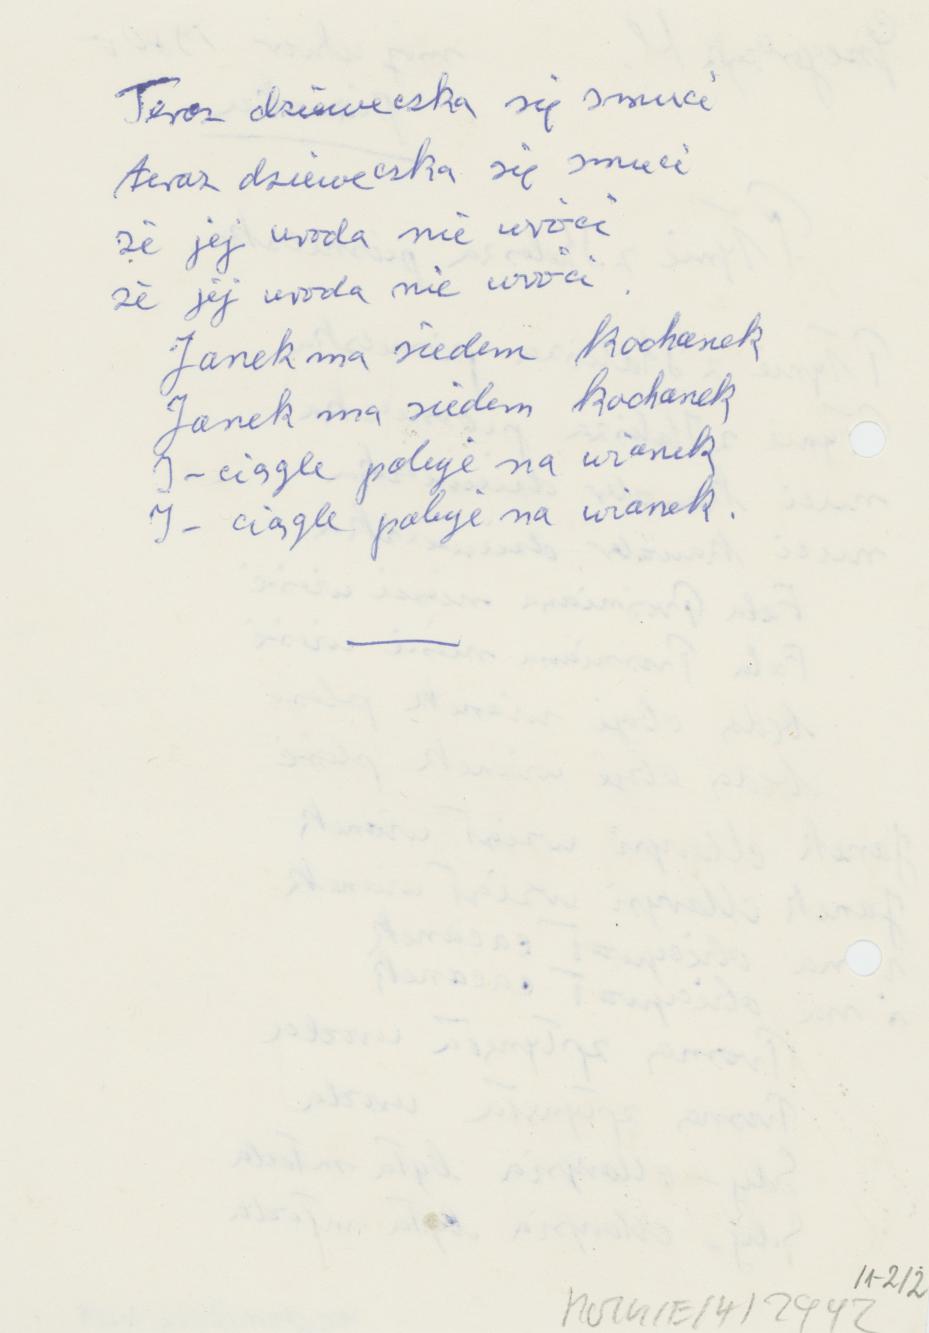 Teraz dzieweczka się smuci
teraz dzieweczka się smuci
że jej uroda nie wróci
że jej uroda nie wróci.
Janek ma siedem kochanek
Janek ma siedem kochanek
I - ciągle poluje na wianek
I - ciągle poluje na wianek.
11-2/2